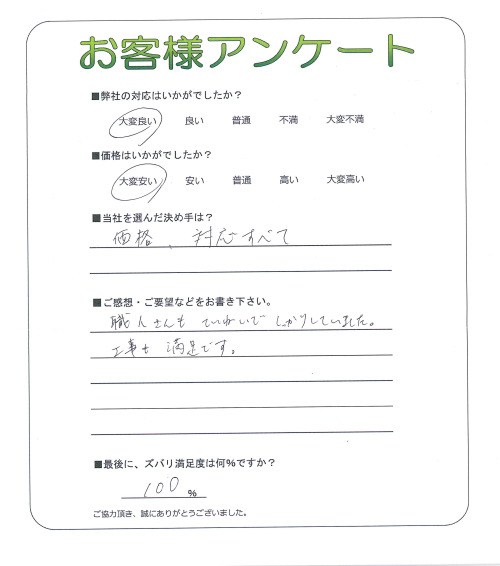 お客様アンケート
■弊社の対応はいかがでしたか？
大変良い 良い 普通 不満 大変不満
■価格はいかがでしたか？
大変安い 安い 普通 高い 大変高い
■当社を選んだ決め手は？
価格、対応すべて
■ご感想・ご要望などをお書き下さい。
職人さんも ていねいで しっかりしていました。
工事も 満足です。
■最後に、ズバリ満足度は何%ですか？
100 %
ご協力頂き、誠にありがとうございました。